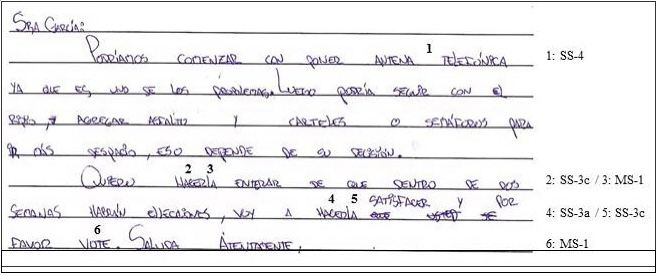 SRA GARCÍA:
PODRÍAMOS COMENZAR CON PONER ANTENA 1 TELEFÓNICA 1: SS-4
YA QUE ES UNO DE LOS PROBLEMAS. LUEGO PODRÍA SEGUIR CON EL
AGREGAR ASFALTO Y CARTELES O SEMÁFOROS PARA
IR MÁS DESPACIO, ESO DEPENDE DE SU DECISIÓN.
QUIERO 2 HACERLA 3 ENTERAR DE QUE DENTRO DE DOS 2: SS-3c / 3: MS-1
SEMANAS HABRÁN ELECCIONES, VOY A 4 HACERLA 5 SATISFACER Y POR 4: SS-3a / 5: SS-3c
FAVOR 6 VOTE. SALUDA ATENTAMENTE, 6: MS-1